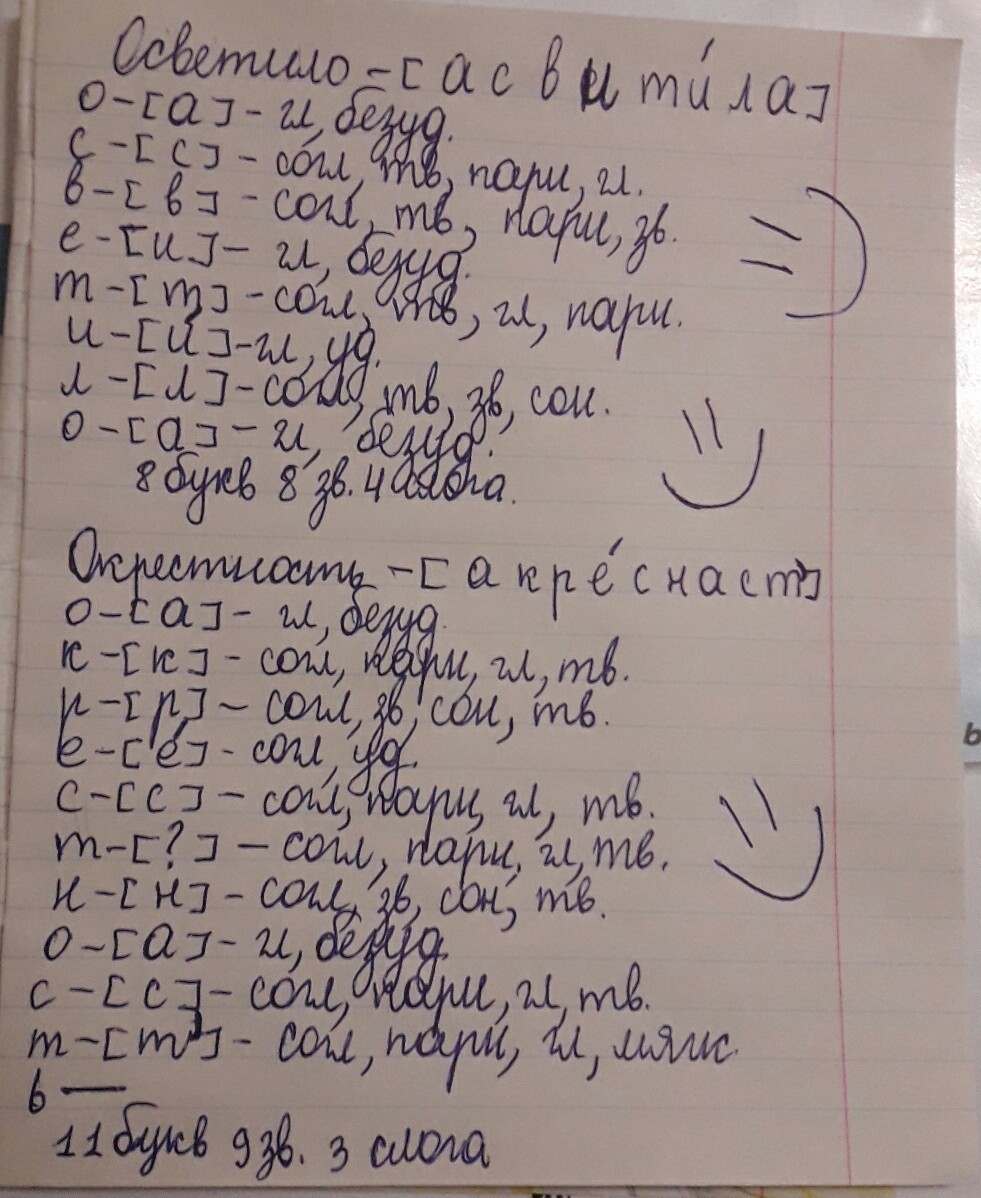 Осветило - [ а с в и ти́ л а ]
о - [а] - гл, безуд.
с - [с] - согл, тв, парн, гл.
в - [в] - согл, тв, парн, зв.
е - [и] - гл, безуд.
т - [т] - согл, тв, гл, парн.
и - [и́] - гл, уд.
л - [л] - согл, тв, зв, сон.
о - [а] - гл, безуд.
8 букв 8 зв. 4 слога.
Окрестность - [ а к р е́ с н а с т' ]
о - [а] - гл, безуд.
к - [к] - согл, парн, гл, тв.
р - [р] - согл, зв, сон, тв.
е - [е́] - согл, уд.
с - [с] - согл, парн, гл, тв.
т - [?] - согл, парн, гл, тв.
н - [н] - согл, зв, сон, тв.
о - [а] - гл, безуд.
с - [с] - согл, парн, гл, тв.
т - [т'] - согл, парн, гл, мягк.
ь —
11 букв 9 зв. 3 слога
b